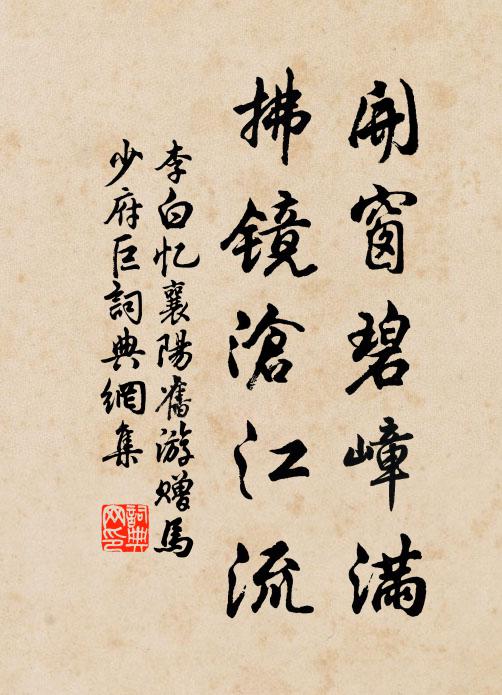 開窗碧嶂滿
拂鏡滄江流
李白忆襄陽舊游贈馬
少府巨詞典網集
詞典
网印